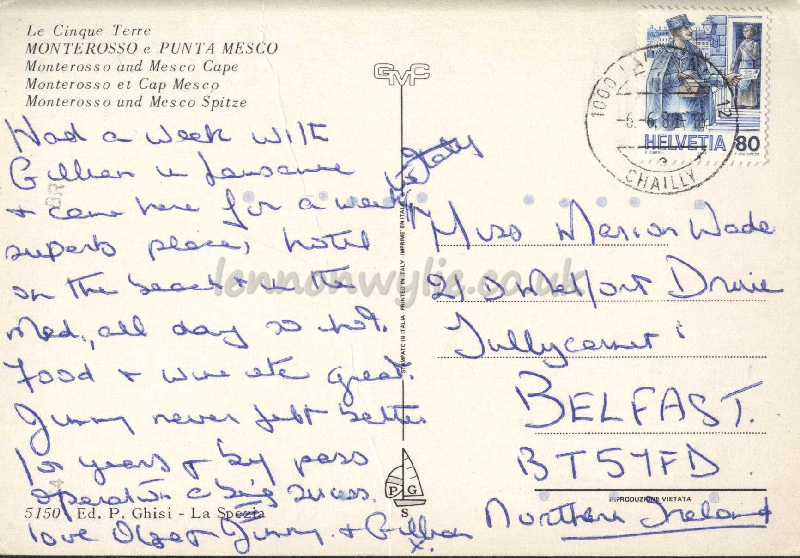 Le Cinque Terre
MONTEROSSO e PUNTA MESCO
Monterosso and Mesco Cape
Monterosso et Cap Mesco
Monterosso und Mesco Spitze
GMC
Had a week with
Gillian in Lausanne
+ came here for a week in Italy
superb place, hotel
on the beach + in the
Med., all day so hot.
Food + wine etc great.
Jimmy never felt better
for years + by pass
operation a big success.
love Olga Jimmy + Gillian
x.
5150 Ed. P. Ghisi - La Spezia
STAMPATO IN ITALIA PRINTED IN ITALY IMPRIME EN ITALIE
P G
S
1000 LA 12
-6.-6.8
CHAILLY
HELVETIA 80
Miss Marion Wade
21 Melfort Drive
Tullycarnet
BELFAST.
BT57FD
Northern Ireland
RIPRODUZIONE VIETATA
lennonwylie.co.uk